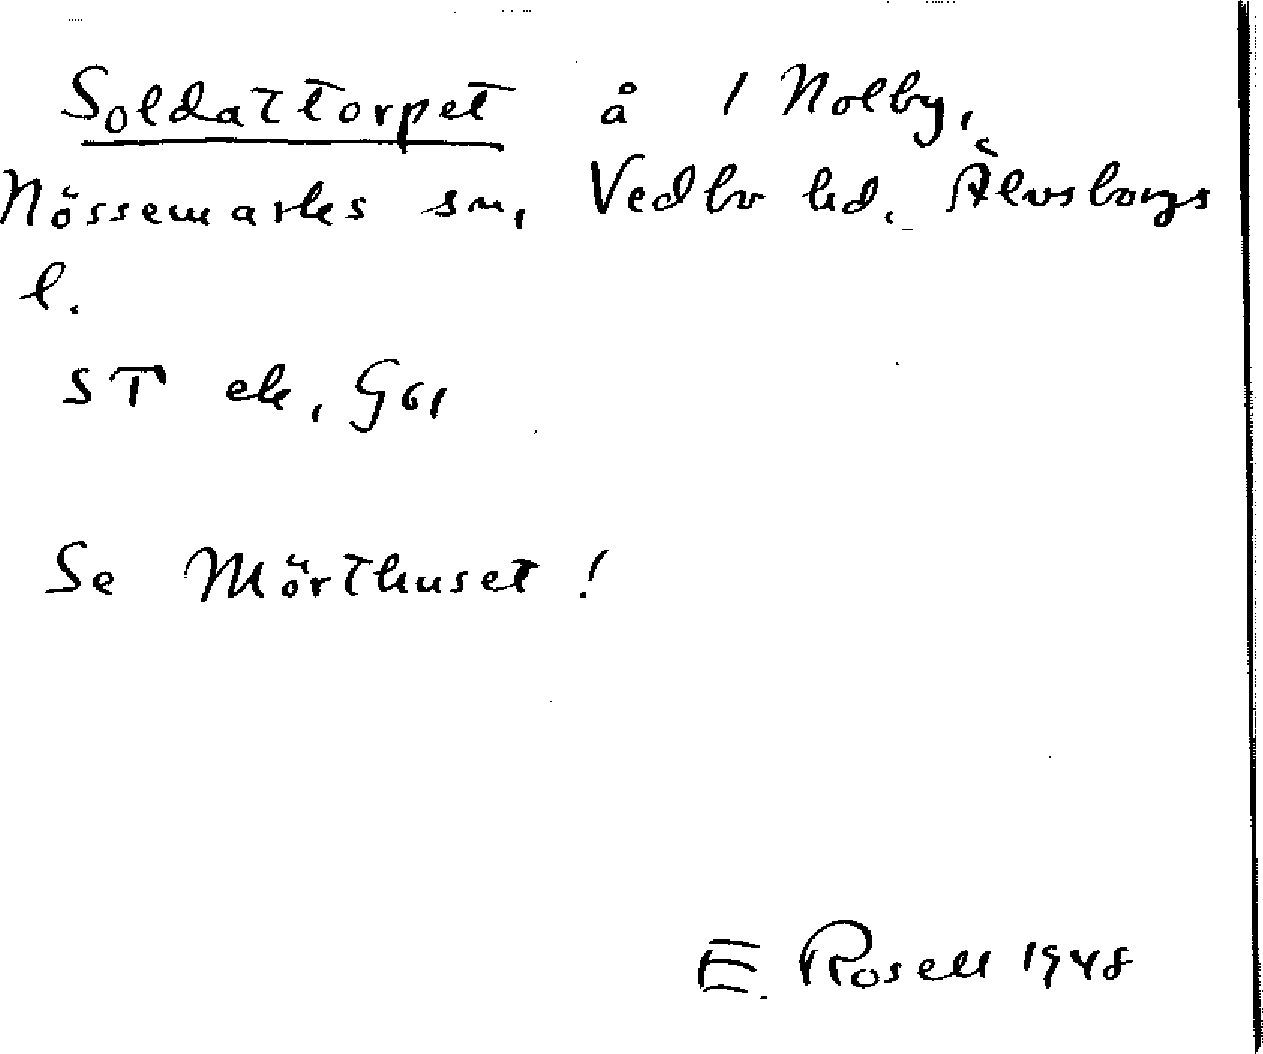 Soldattorpet å 1 Nolby,
Nössemarks sn, Vedbo hd. Älvsborgs
l.
ST ek, G61
Se Mörthuset!
E. Rosell 1948